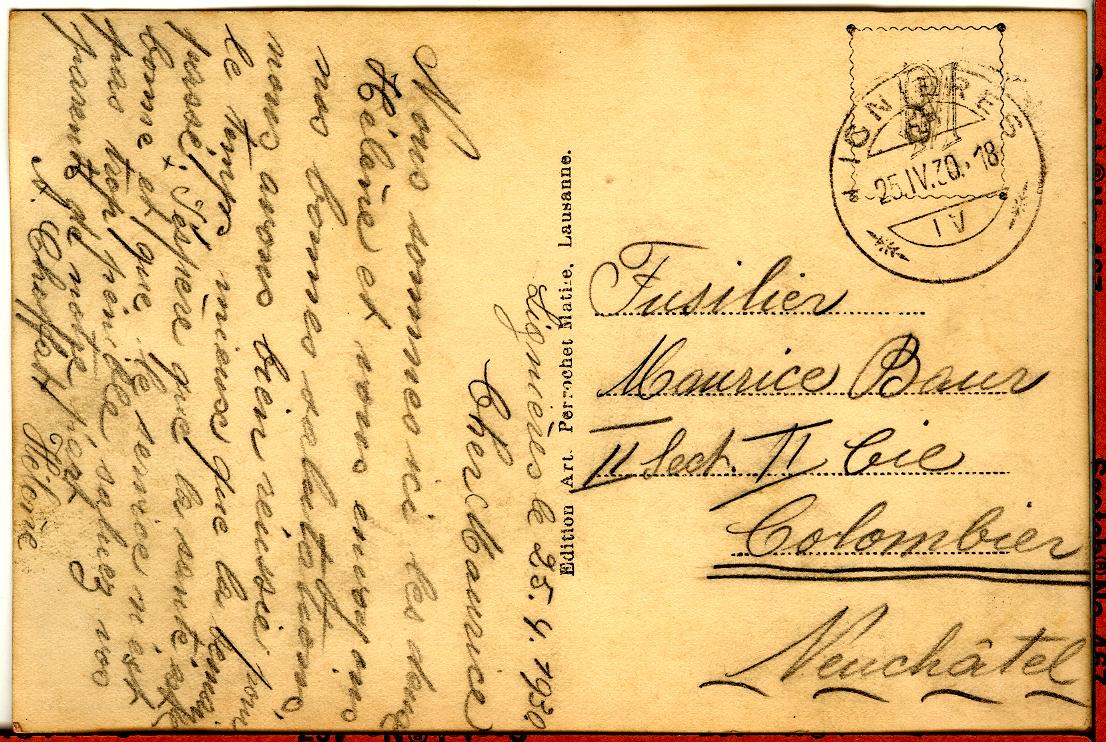 Lignières le 25.4.1930
Cher Maurice
Nous sommes ici les deux
Hélène et vous envoyons
nos bonnes salutations,
nous avons bien réussi pour
le temps mieux que la semaine
passé, J'espère que la santé est
bonne et que le service n'est
pas trop pénible saluez vos
parents de notre part
A. Chiffart Hélène
Edition Art. Perrochet Matile, Lausanne.
LIGNIÈRES
25.IV.30. 18
IV
Fusilier
Maurice Baur
II Sect. II Cie
Colombier
Neuchâtel